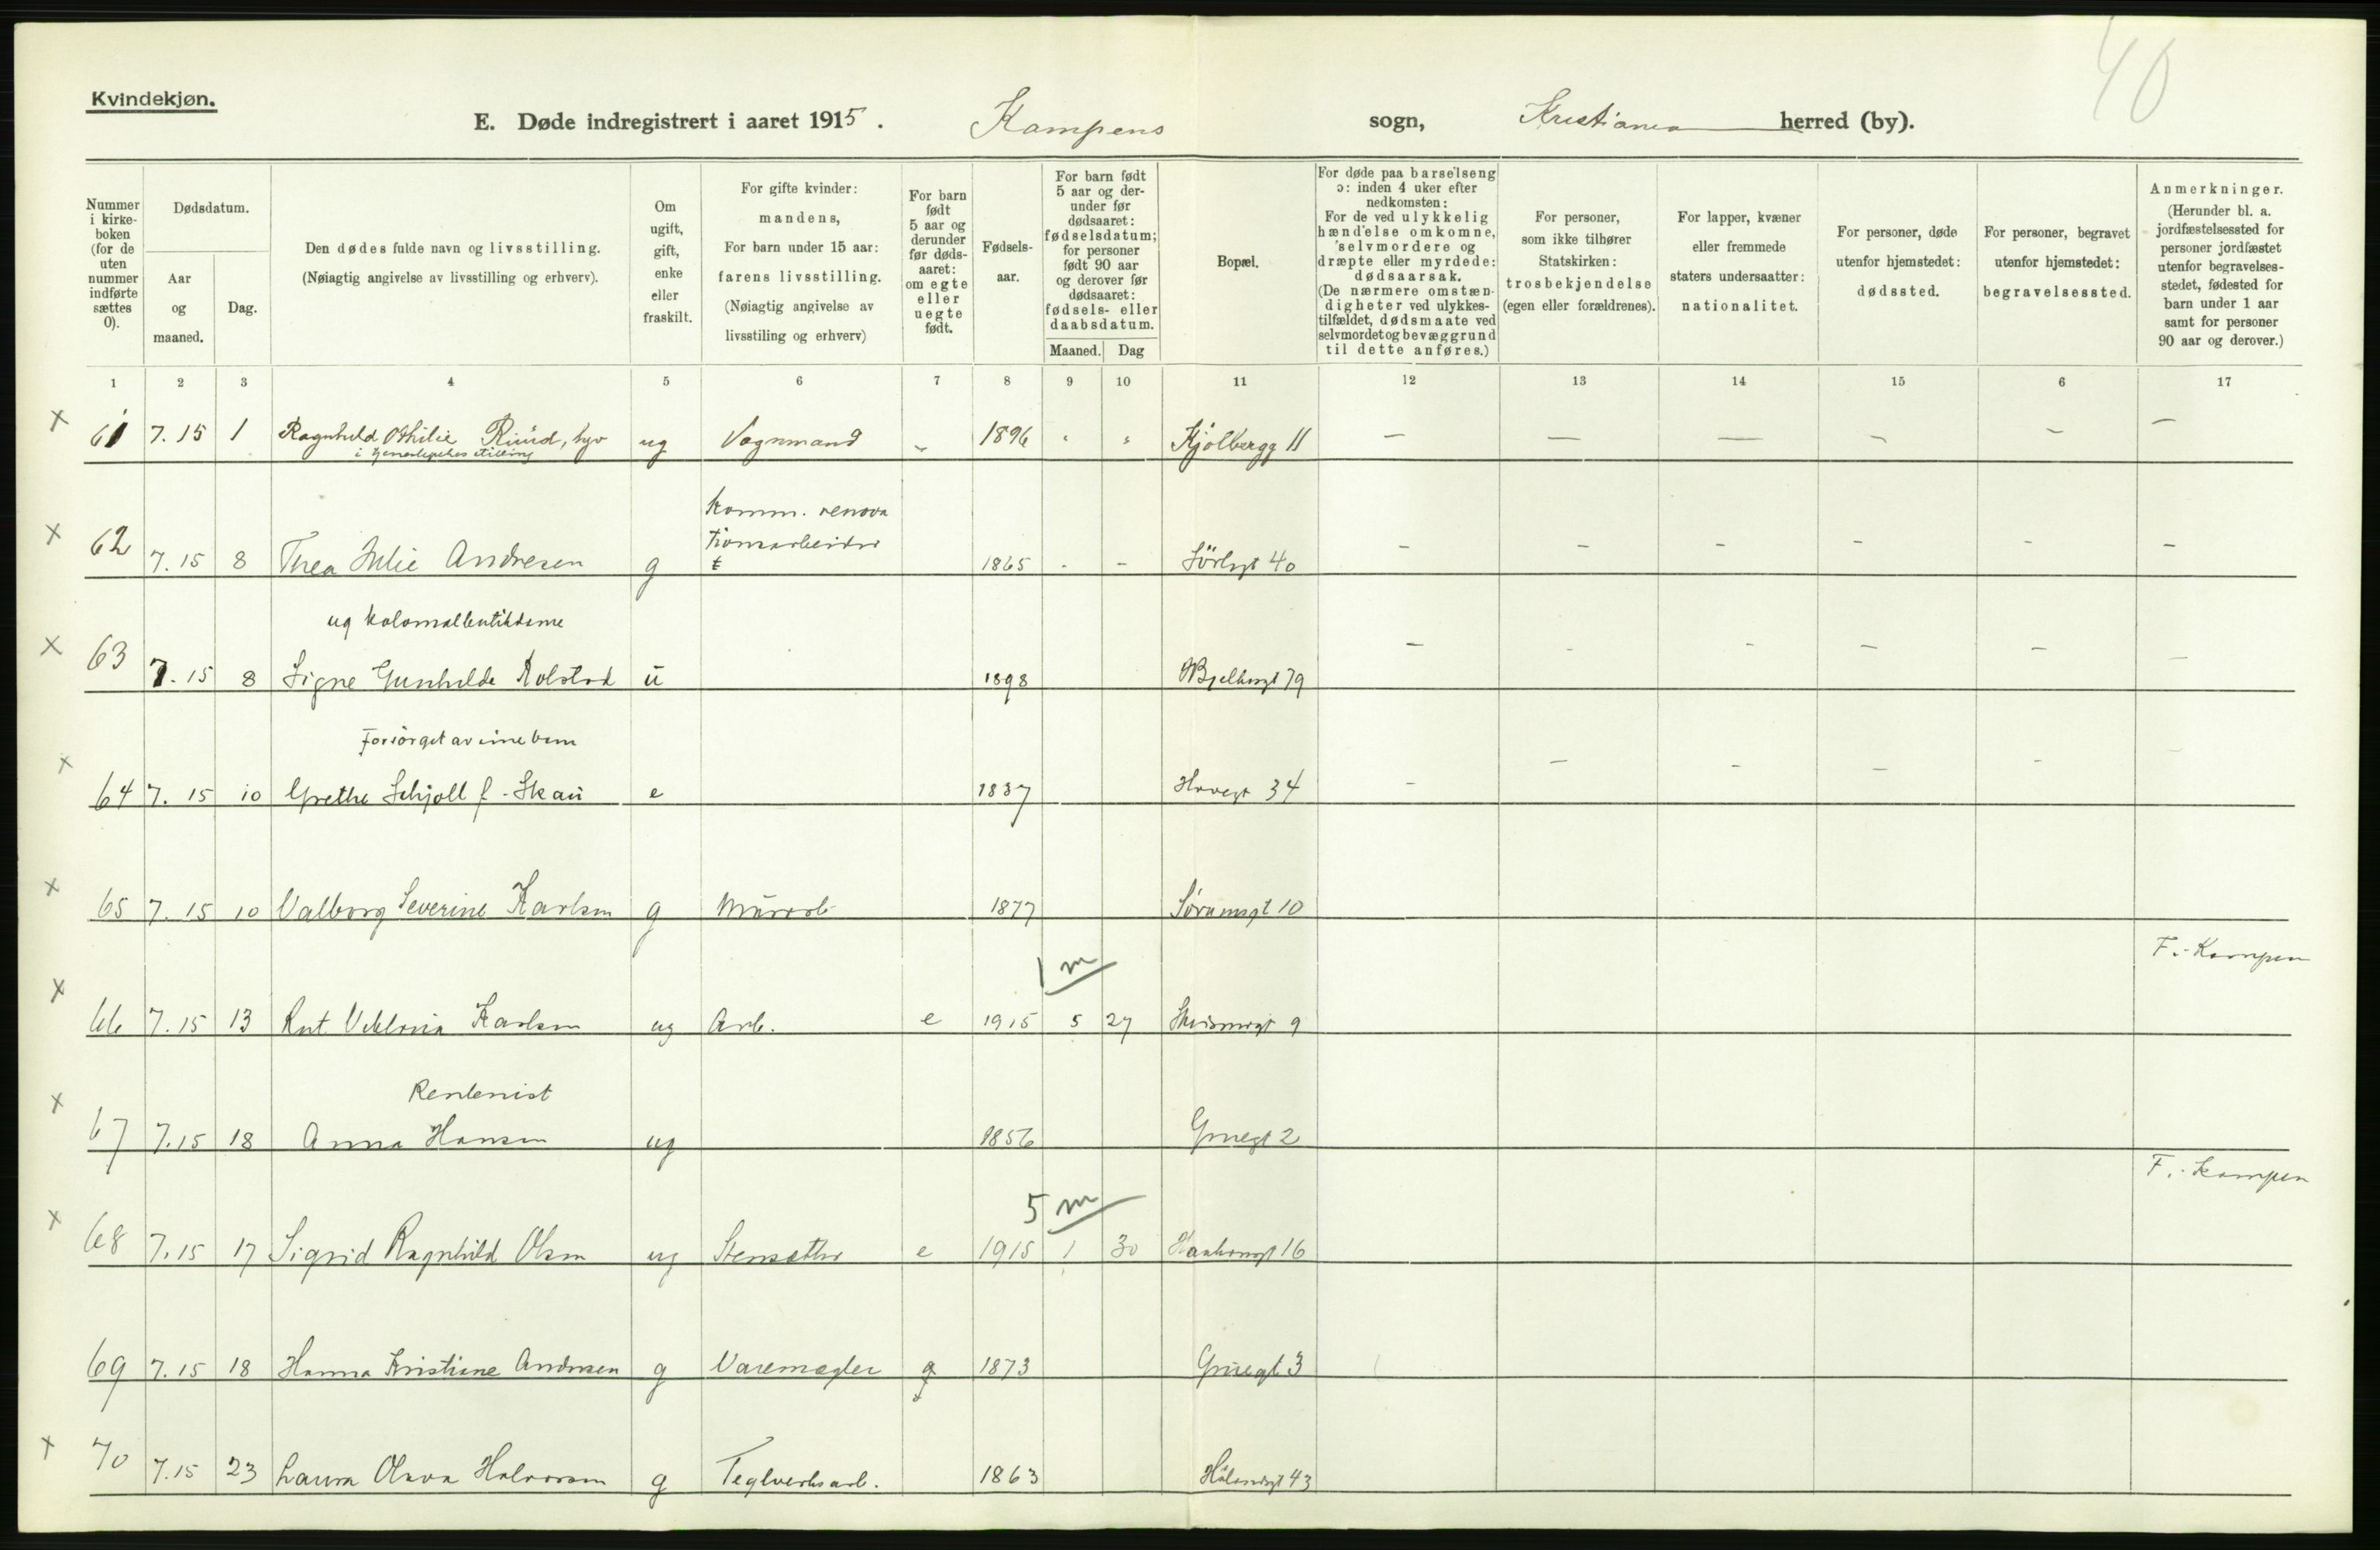 40
Kvindekjøn.
E. Døde indregistrert i aaret 1915. Kampens sogn, Kristiania herred (by).
Nummer i kirke-boken (for de uten nummer indførte sættes 0).
Dødsdatum.
Aar og maaned.
Dag.
Den dødes fulde navn og livsstilling. (Nøiagtig angivelse av livsstilling og erhverv).
Om ugift, gift, enke eller fraskilt.
For gifte kvinder: mandens, For barn under 15 aar: farens livsstilling. (Nøiagtig angivelse av livsstiling og erhverv)
For barn født 5 aar og derunder før døds-aaret: om egte eller uegte født.
Fødsels-aar.
For barn født 5 aar og der-under før dødsaaret: fødselsdatum; for personer født 90 aar og derover før dødsaaret: fødsels- eller daabsdatum.
Maaned. Dag
Bopæl.
For døde paa barselseng ɔ: inden 4 uker efter nedkomsten: For de ved ulykkelig hændelse omkomne, selvmordere og dræpte eller myrdede: dødsaarsak. (De nærmere omstæn-digheter ved ulykkes-tilfældet, dødsmaate ved selvmordet og bevæggrund til dette anføres.)
For personer, som ikke tilhører Statskirken: trosbekjendelse (egen eller forældrenes).
For lapper, kvæner eller fremmede staters undersaatter: nationalitet.
For personer, døde utenfor hjemstedet: dødssted.
For personer, begravet utenfor hjemstedet: begravelsessted.
Anmerkninger. (Herunder bl. a. jordfæstelsessted for personer jordfæstet utenfor begravelses-stedet, fødested for barn under 1 aar samt for personer 90 aar og derover.)
1 2 3 4 5 6 7 8 9 10 11 12 13 14 15 6 17
× 61 7.15 1 Ragnhild Othilie Ruud, hgv ug Vognmand - 1896 " " Kjølbergg 11 — — — — — —
i stilling
Komm. renova
tionsarbeider
× 62 7.15 8 Thea Julie Andresen g 1865 - - Sørligt 40 - - - - -
ug kolonialbutikdame
× 63 7.15 8 Signe Gunhilde Rolstad u 1898 79 - - - - - -
Forsørget av sine barn
× 64 7.15 10 Grethe Schjoll f. Skau e 1837 Hovegt 34 - - - - -
× 65 7.15 10 Valborg Severine Karlsen g Murarb 1877 Sørumsgt 10
F.: Kampen
1 m
× 66 7.15 13 Rut Viktoria Karlsen ug Arb. e 1915 5 27 9
Rentenist
× 67 7.15 18 Anna Hansen ug 1856 Gruegt 2
F.: Kampen
5 m
× 68 7.15 17 Sigrid Ragnhild Olsen ug Stensætter e 1915 1 30 16
69 7.15 18 Hanna Kristiane Andresen g Varemægler g 1873 Gruegt 3
× 70 7.15 23 Laura Olava Halvorsen g Teglverksarb. 1863 Hølandsgt 43